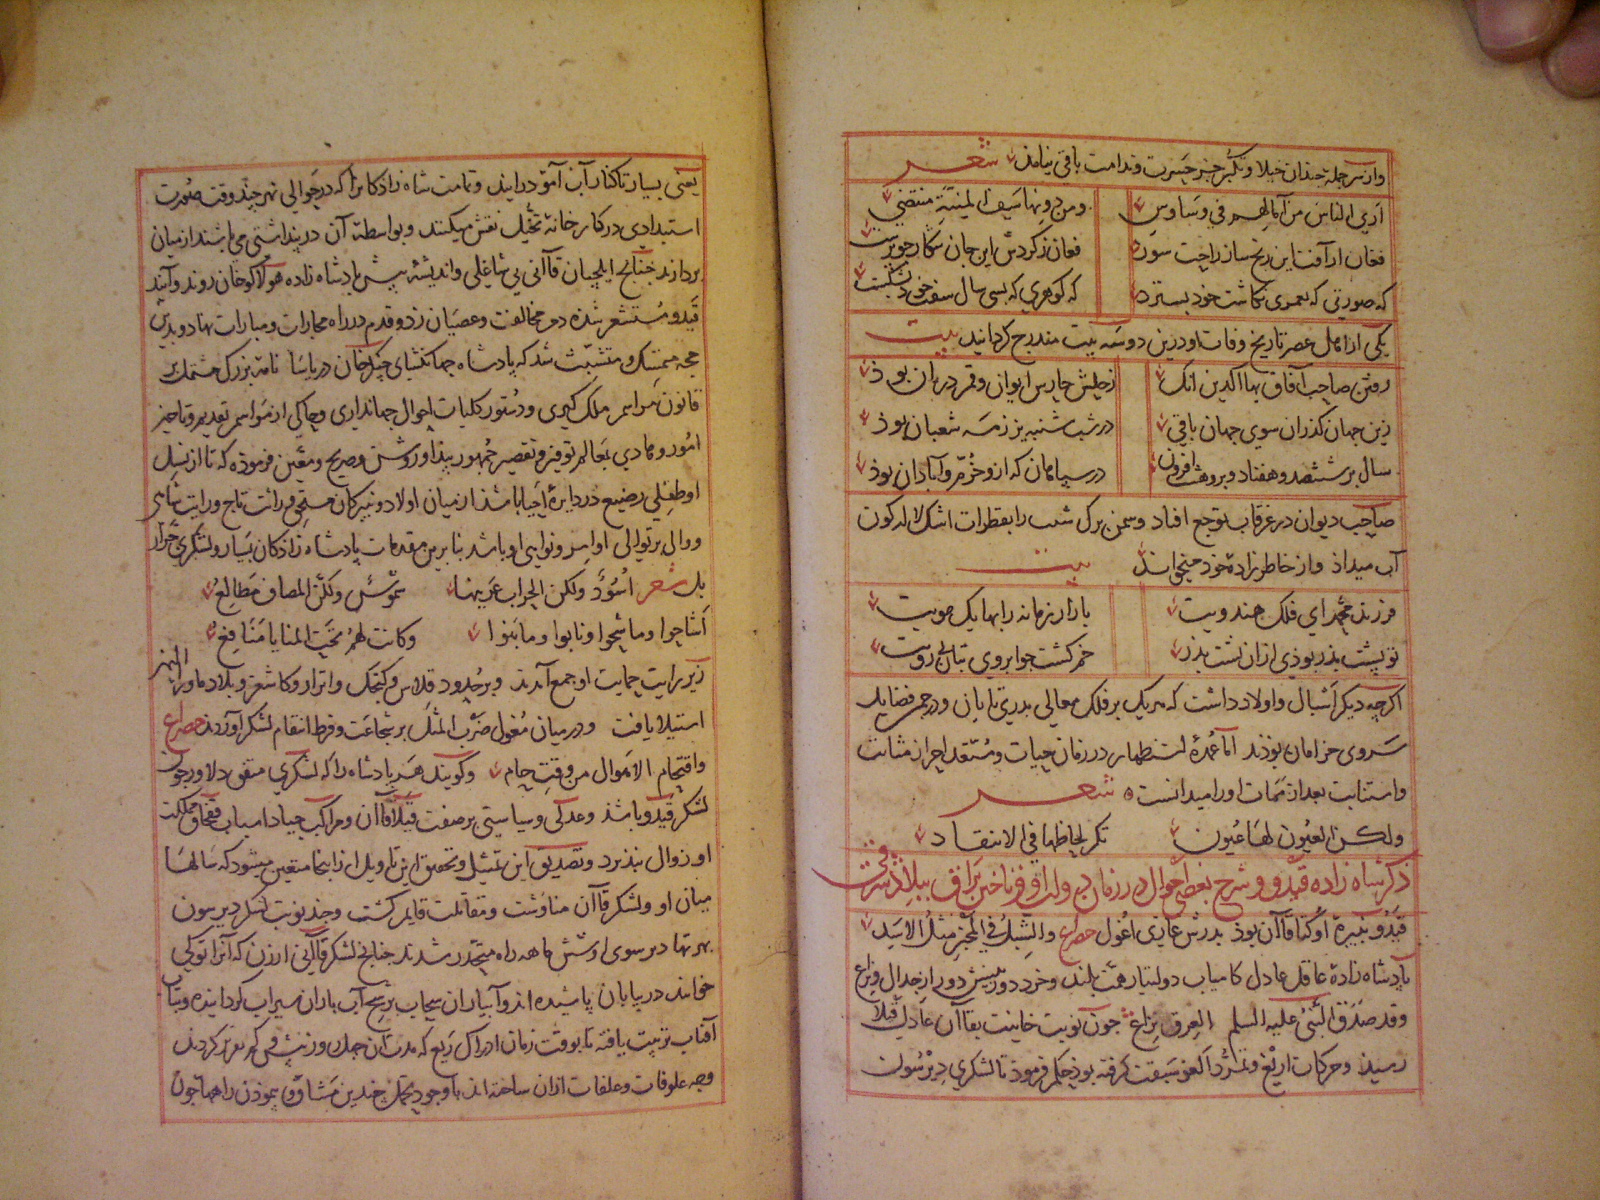 و از سر جمله چندان خیلا و تکبر جز حسرت و ندامت باقی نماند شعر
اری الناس من آمالهم فی وساوس
و من دونها سیف المنیة منتضی
فغان از آفت این رنج ساز راحت سوز
فغان ز کردش این جان شکار جور پرست
که صورتی که بعمری نکاشت خود بسترد
که کوهری که بسی سال سفت خود بشکست
یکی از اماثل عصر تاریخ وفات او درین دو سه بیت مندرج کردانید بیت
رفتن صاحب آفاق بها الدین انک
زحلش حارس ایوان و قمر دربان بوذ
زین جهان کذران سوی جهان باقی
در شب شنبه ز مه شعبان بوذ
سال بر ششصد و هفتاد و برو هشت افزون
در سپاهان که ازو خرم و آبادان بوذ
صاحب دیوان در غرقاب توجع افتاد و سمن برک شیب را بقطرات اشک لاله کون
آب میداذ و از خاطر زاده خود میخواند بیت
فرزند محمد ای فلک هندویت
بازار زمانه را بها یک مویت
تو پشت پدر بوذی ازان پشت پدر
خم کشت چو ابروی بتان بی رویت
اکرچه دیکر اشبال و اولاد داشت که هر یک بر فلک معالی بدری تابان و در چمن فضایل
سروی خرامان بوذند اما عمده استظهار در زمان حیات و مستعد احراز مثابت
و استنابت بعد از ممات او را میدانست شعر
ولکن العیون لها عیون
تکر لحاظها فی الانتقاد
ذکر شاه زاده قیدو و شرح بعضی احوال در زمان دولت او و تاختن براق ببلاد شرقی
قیدو نبیره اوکتا قاآن بوذ پدرش غازی اغول مصراع و الشبل فی المخبر مثل الاسد
پادشاه زاده عاقل عادل کامیاب دولتیار همت بلند و خرد دوربینش دور از جدال و نزاع
و قد صدق النبی علیه السلم العرق نزاع چون نوبت خانیت بقاآن عادل قبلا
رسید و حرکات اریغ و تمرد الغو سبقت کرفته بوذ حکم فرموذ تا لشکری دیرسون
یعنی بسیار تا کنار آب آمو درایند و تمامت شاه زاذکانرا که در حوالی نهر چند وقت صورت
استبدادی در کارخانه تخیل نقش میکنند و بواسطه آن در پنداشتی می باشند از میان
بردارند چنانچ ایلچیان قاآنی بی شاغلی و اندیشه پیش پادشاه زاده هولاکو خان روند و آیند
قیدو مستشعر شده دم مخالفت و عصیان زد و قدم در راه مجارات و مبارات نهاد و بدین
حجه متمسک و متشبث شد که پادشاه جهانکشای چنکز خان در یاسا نامه بزرک مشتمل بر
قانون مراسم ملک کیری و دستور کلیات احوال جهانداری و حاکی از مواسم تقدیم و تاخیر
امور و مبادی بمعالم توفیر و تقصیر جمهور پیدا و روشن و صریح و معین فرموذه که تا از نسل
او طفلی رضیع در دایره احیا باشذ از میان اولاد و نبیرکان مستحق وراثت تاج و رایت شاهی
و وال بر توالی اوامر و نواهی او باشد بنا برین مقدمات پادشاه زاذکان بسیار و لشکری جرار
بل شعر اسود ولکن الحراب عرینها
شموس ولکن المصاف مطالع
اشاحوا و ما شحوا و نابوا و ما نبوا
و کانت لهم تحت المنایا منافع
زیر رایت حمایت او جمع آمدند و بر حدود تلاس و کنجک و اترار و کاشغر و بلاد ماورا النهر
استیلا یافت و در میان مغول ضرب المثل بر شجاعت و فرط انتقام لشکر آوردند مصراع
و اقتحام الاهوال من وقت حام و کویند هر پادشاه را که لشکری متفق دلاور چون
لشکر قیدو باشذ و عدلی و سیاستی بر صفت قبلا قاآن و مراکب جیاد اسباب قفچاق مملکت
او زوال نپذیرد و تصدیق این تمثیل و تحقیق این تاویل از اینجا متعین میشود که سالها
میان او و لشکر قاآن مناوشت و مقاتلت قایم کشت و چند نوبت لشکر دیرسون
بهر نهاد بر سوی او شش ماهه راه متجرد شدند چنانچ لشکر قاآنی ارزن که آنرا توکی
خوانند در بیابان پاشیده اند و آبیاران سحاب برشح آب باران سیراب کردانیده و بتاب
آفتاب تربیت یافته تا بوقت زمان ادراک ریع که مدت آن چهل روز بیش نمی کیرد تمر کردند
وجه علوفات و علفات ازان ساخته اند با وجود تحمل چندین مشاق نموذن راهها چون